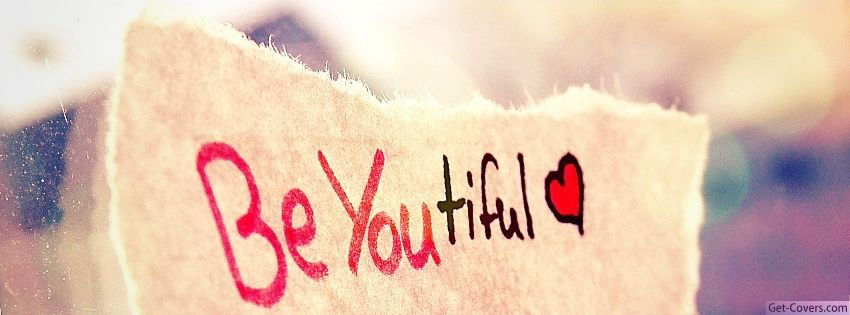 BeYoutiful
Get-Covers.com